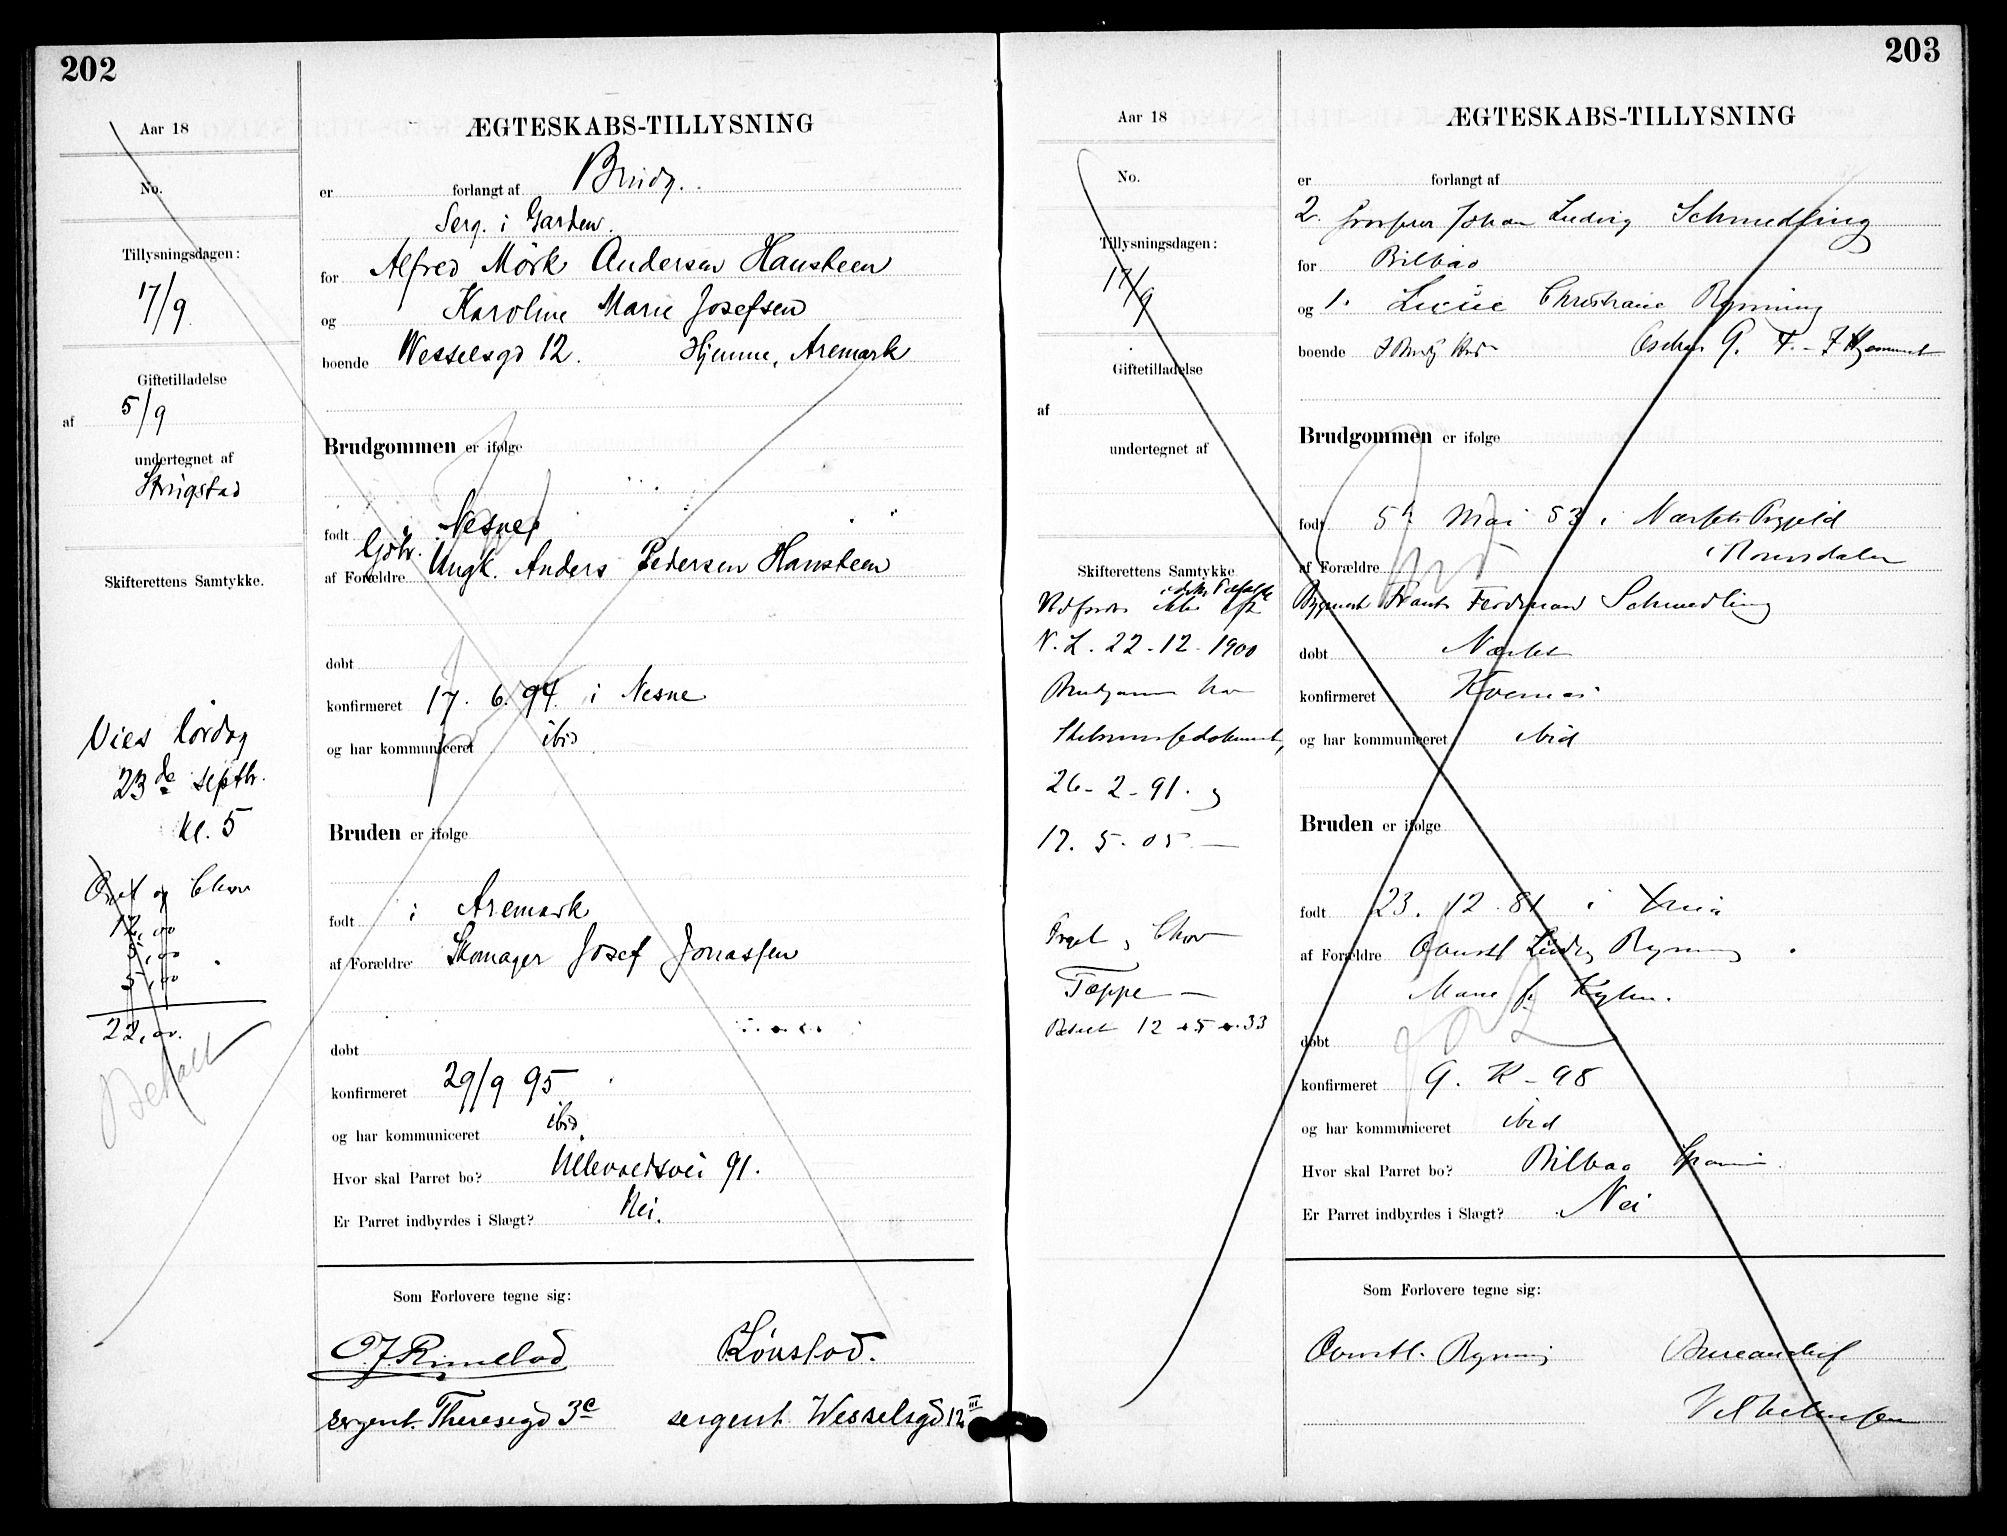 202
Aar 18
No.
Tillysningsdagen:
17/9
Giftetilladelse
af 5/9
undertegnet af
Skifterettens Samtykke.
Vies Lørdag
23de septbr.
kl. 5
Orgel og Chor
12,00
5,00
5,00
22,00.
Betalt
ÆGTESKABS-TILLYSNING
er forlangt af Brudg.
Serg. i Garden.
for Alfred Mörk Andersen Hansteen
og Karoline Marie Josefsen
boende Wesselsgd 12. Hjemme, Aremark
Brudgommen er ifølge
født Nesne
af Forældre Gdbr. Ungk. Anders Pedersen Hansteen
døbt
konfirmeret 17. 6. 94 i Nesne
og har kommuniceret ibid
Bruden er ifølge
født i Aremark
af Forældre Skomager Josef Jonassen
døbt
konfirmeret 29/9 95
og har kommuniceret ibid
Hvor skal Parret bo? Ullevoldsvei 91.
Er Parret indbyrdes i Slægt? Nei.
Som Forlovere tegne sig:
Lönstad.
sergent Theresegd 3c sergent Wesselsgd 12 III
203
Aar 18
No.
Tillysningsdagen:
17/9
Giftetilladelse
af
undertegnet af
Skifterettens Samtykke
N. L. 22-12-1900
26-2-91. og
12. 5. 05
Orgel og Chor
Tæppe
Betalt 12 + 5 + 33
ÆGTESKABS-TILLYSNING
er forlangt af
2. Johan Ludvig Schmedling
for Bilbao
og 1. Christiane Rynning
boende Oschas G.
Brudgommen er ifølge
født 5te Mai 53 i
Romsdalen
af Forældre
Frants Ferdinand Schmedling
døbt
konfirmeret
og har kommuniceret ibid
Bruden er ifølge
født 23. 12. 81 i
af Forældre Oberstl. Ludvig Rynning
Marie f.
døbt
konfirmeret G. K - 98
og har kommuniceret ibid
Hvor skal Parret bo? Bilbao Spanien
Er Parret indbyrdes i Slægt? Nei
Som Forlovere tegne sig:
Oberstl. Rynning Bureauchef
Vilhelmsen